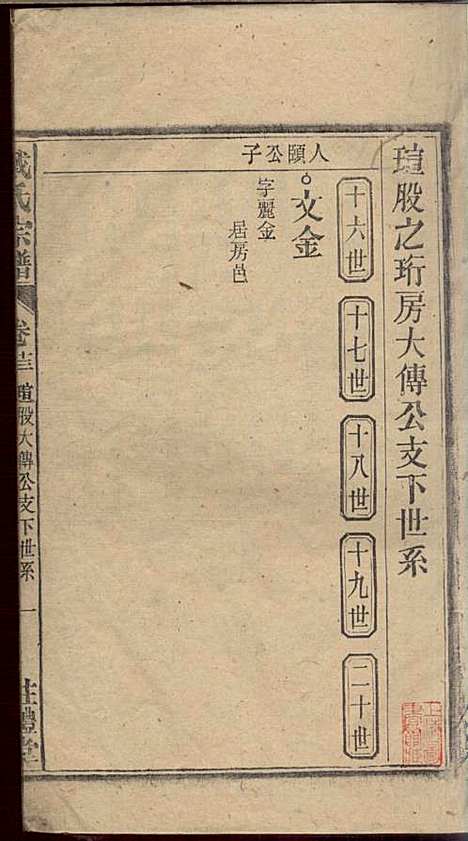 瑄股之珩房大傳公支下世系
十六世
十七世
十八世
十九世
二十世
人頤公子
文金
字麗金
居房邑
氏宗譜
卷
瑄股大傳公支下世系
一
禮堂